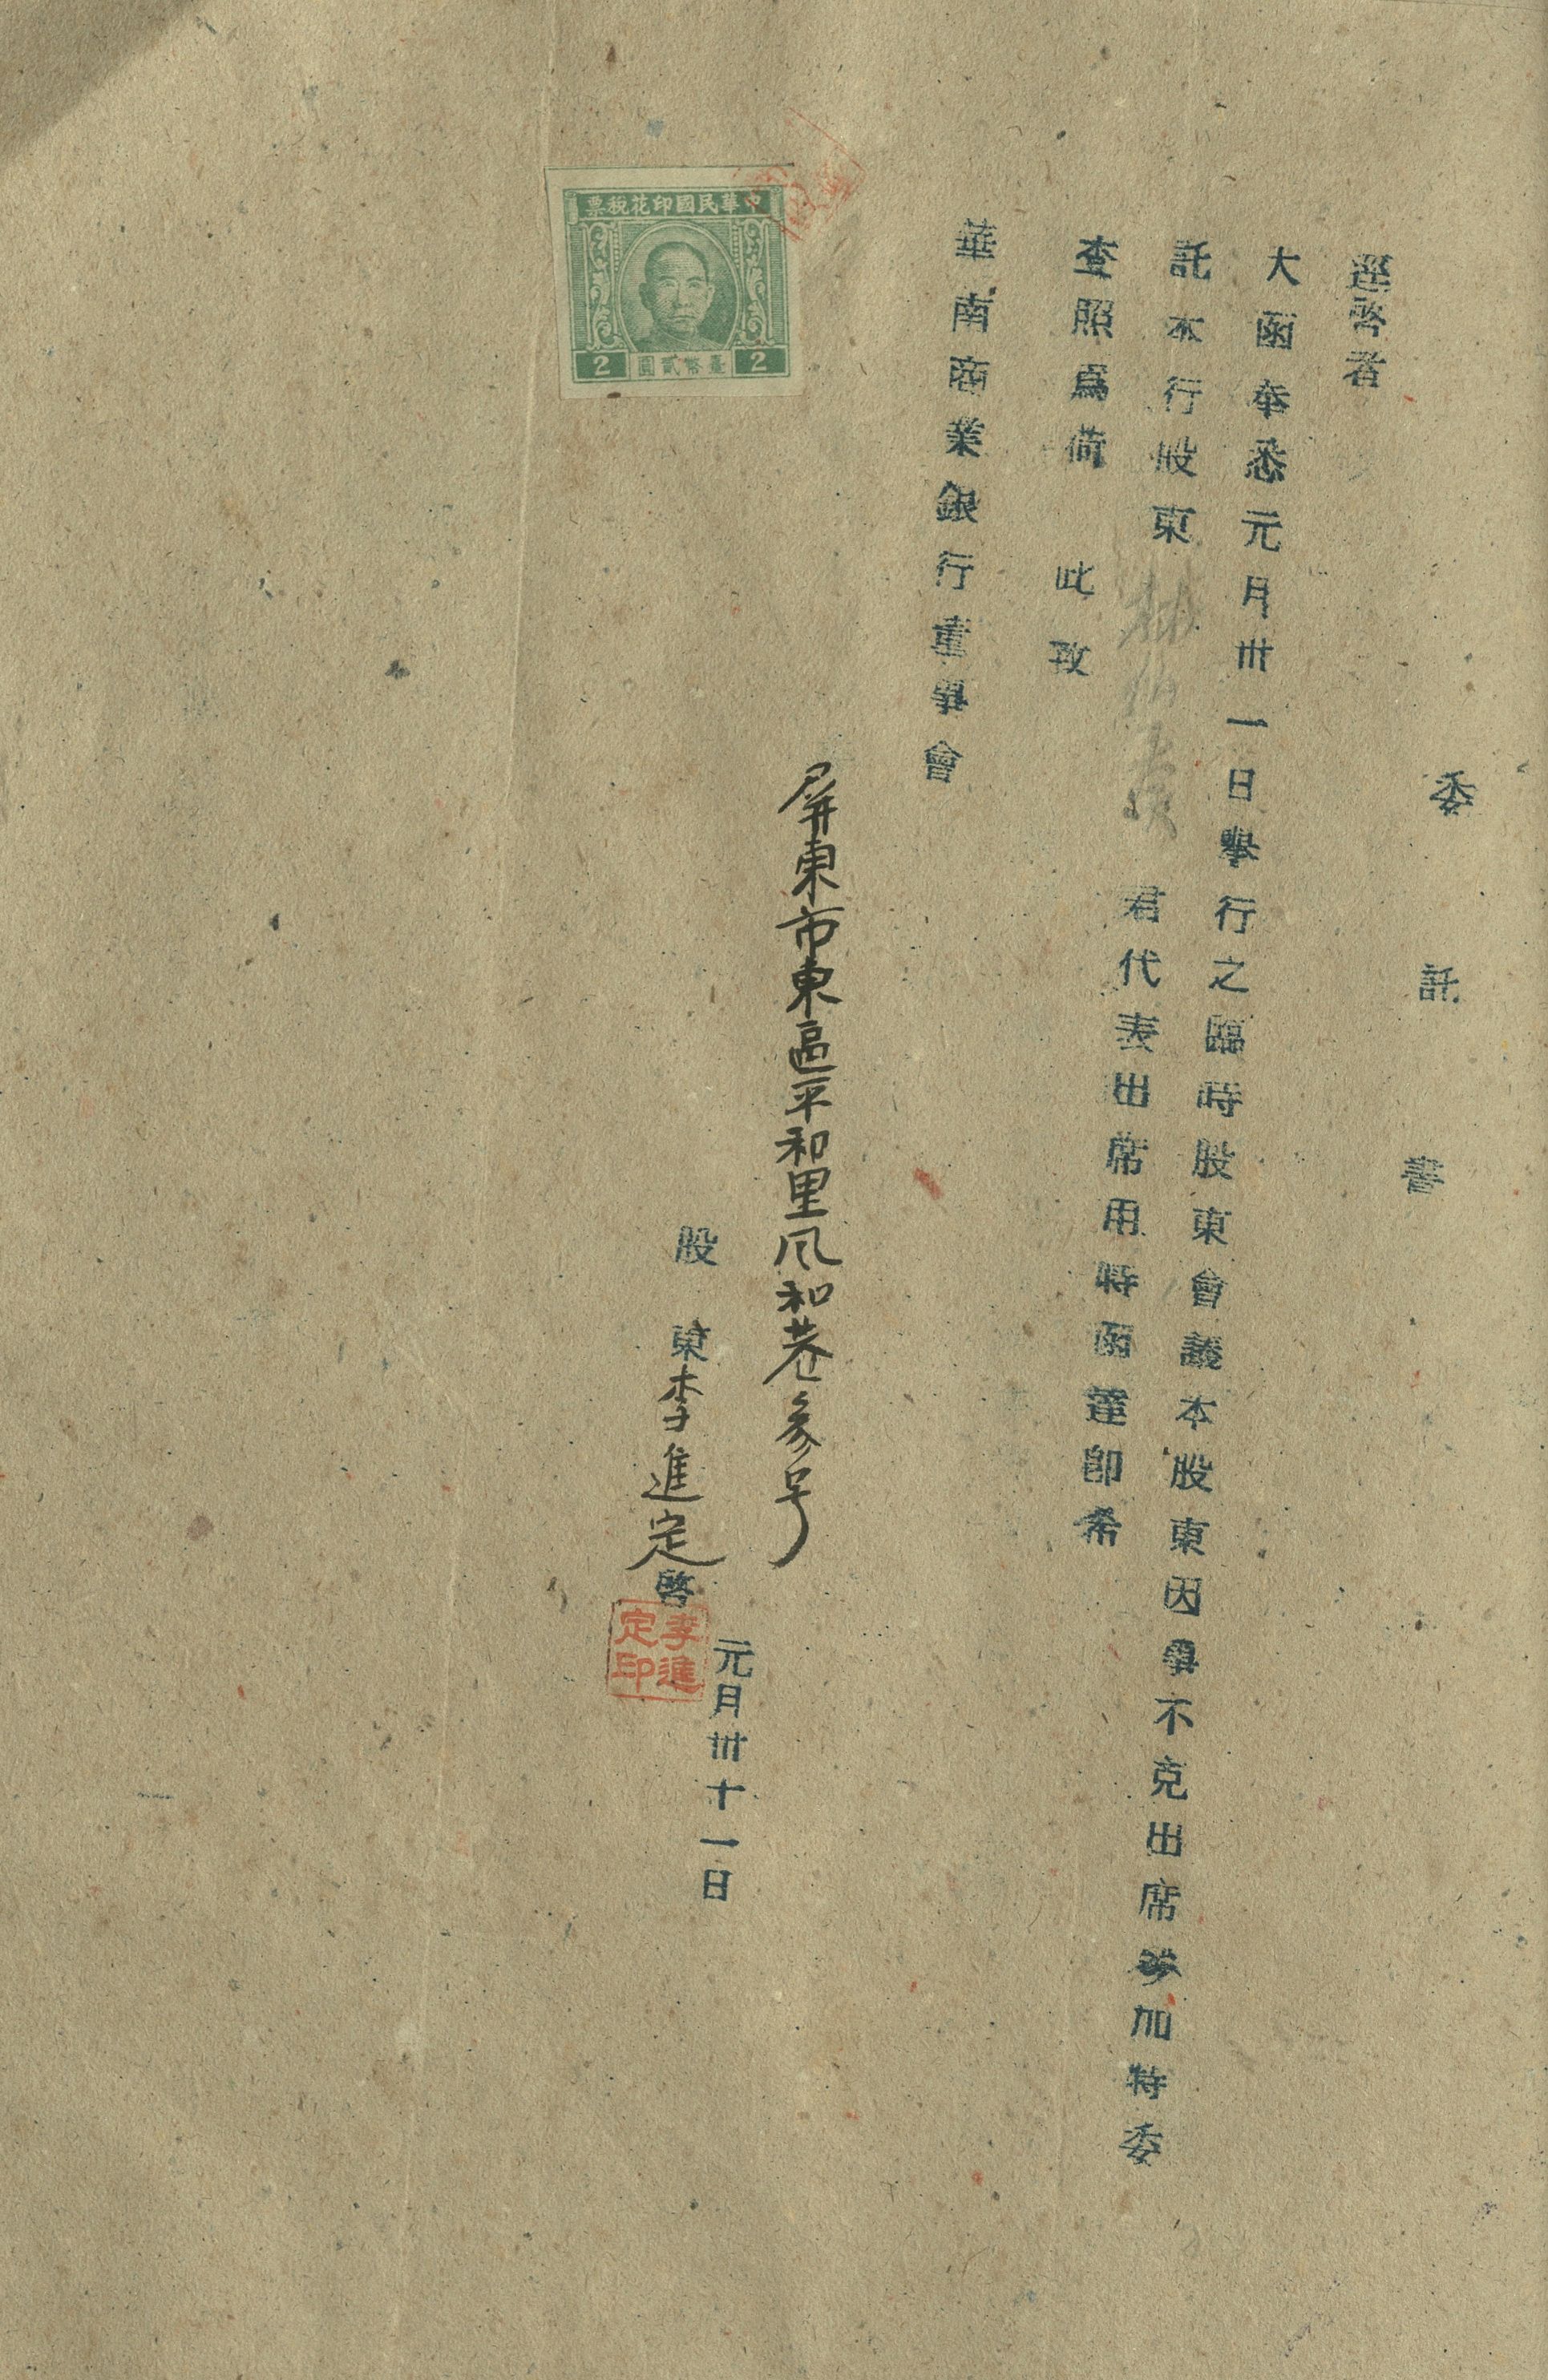 委託書
逕啓者
大函奉悉元月卅一日舉行之臨時股東會議本股東因事不克出席參加特委
託本行股東林 君代表出席用特函達卽希
查照爲荷 此致
華南商業銀行董事會
屏東市東區平和里凤和巷參号
股東李進定啓
元月卅十一日
李進定印
中華民國印花稅票
2 臺幣貳圓 2